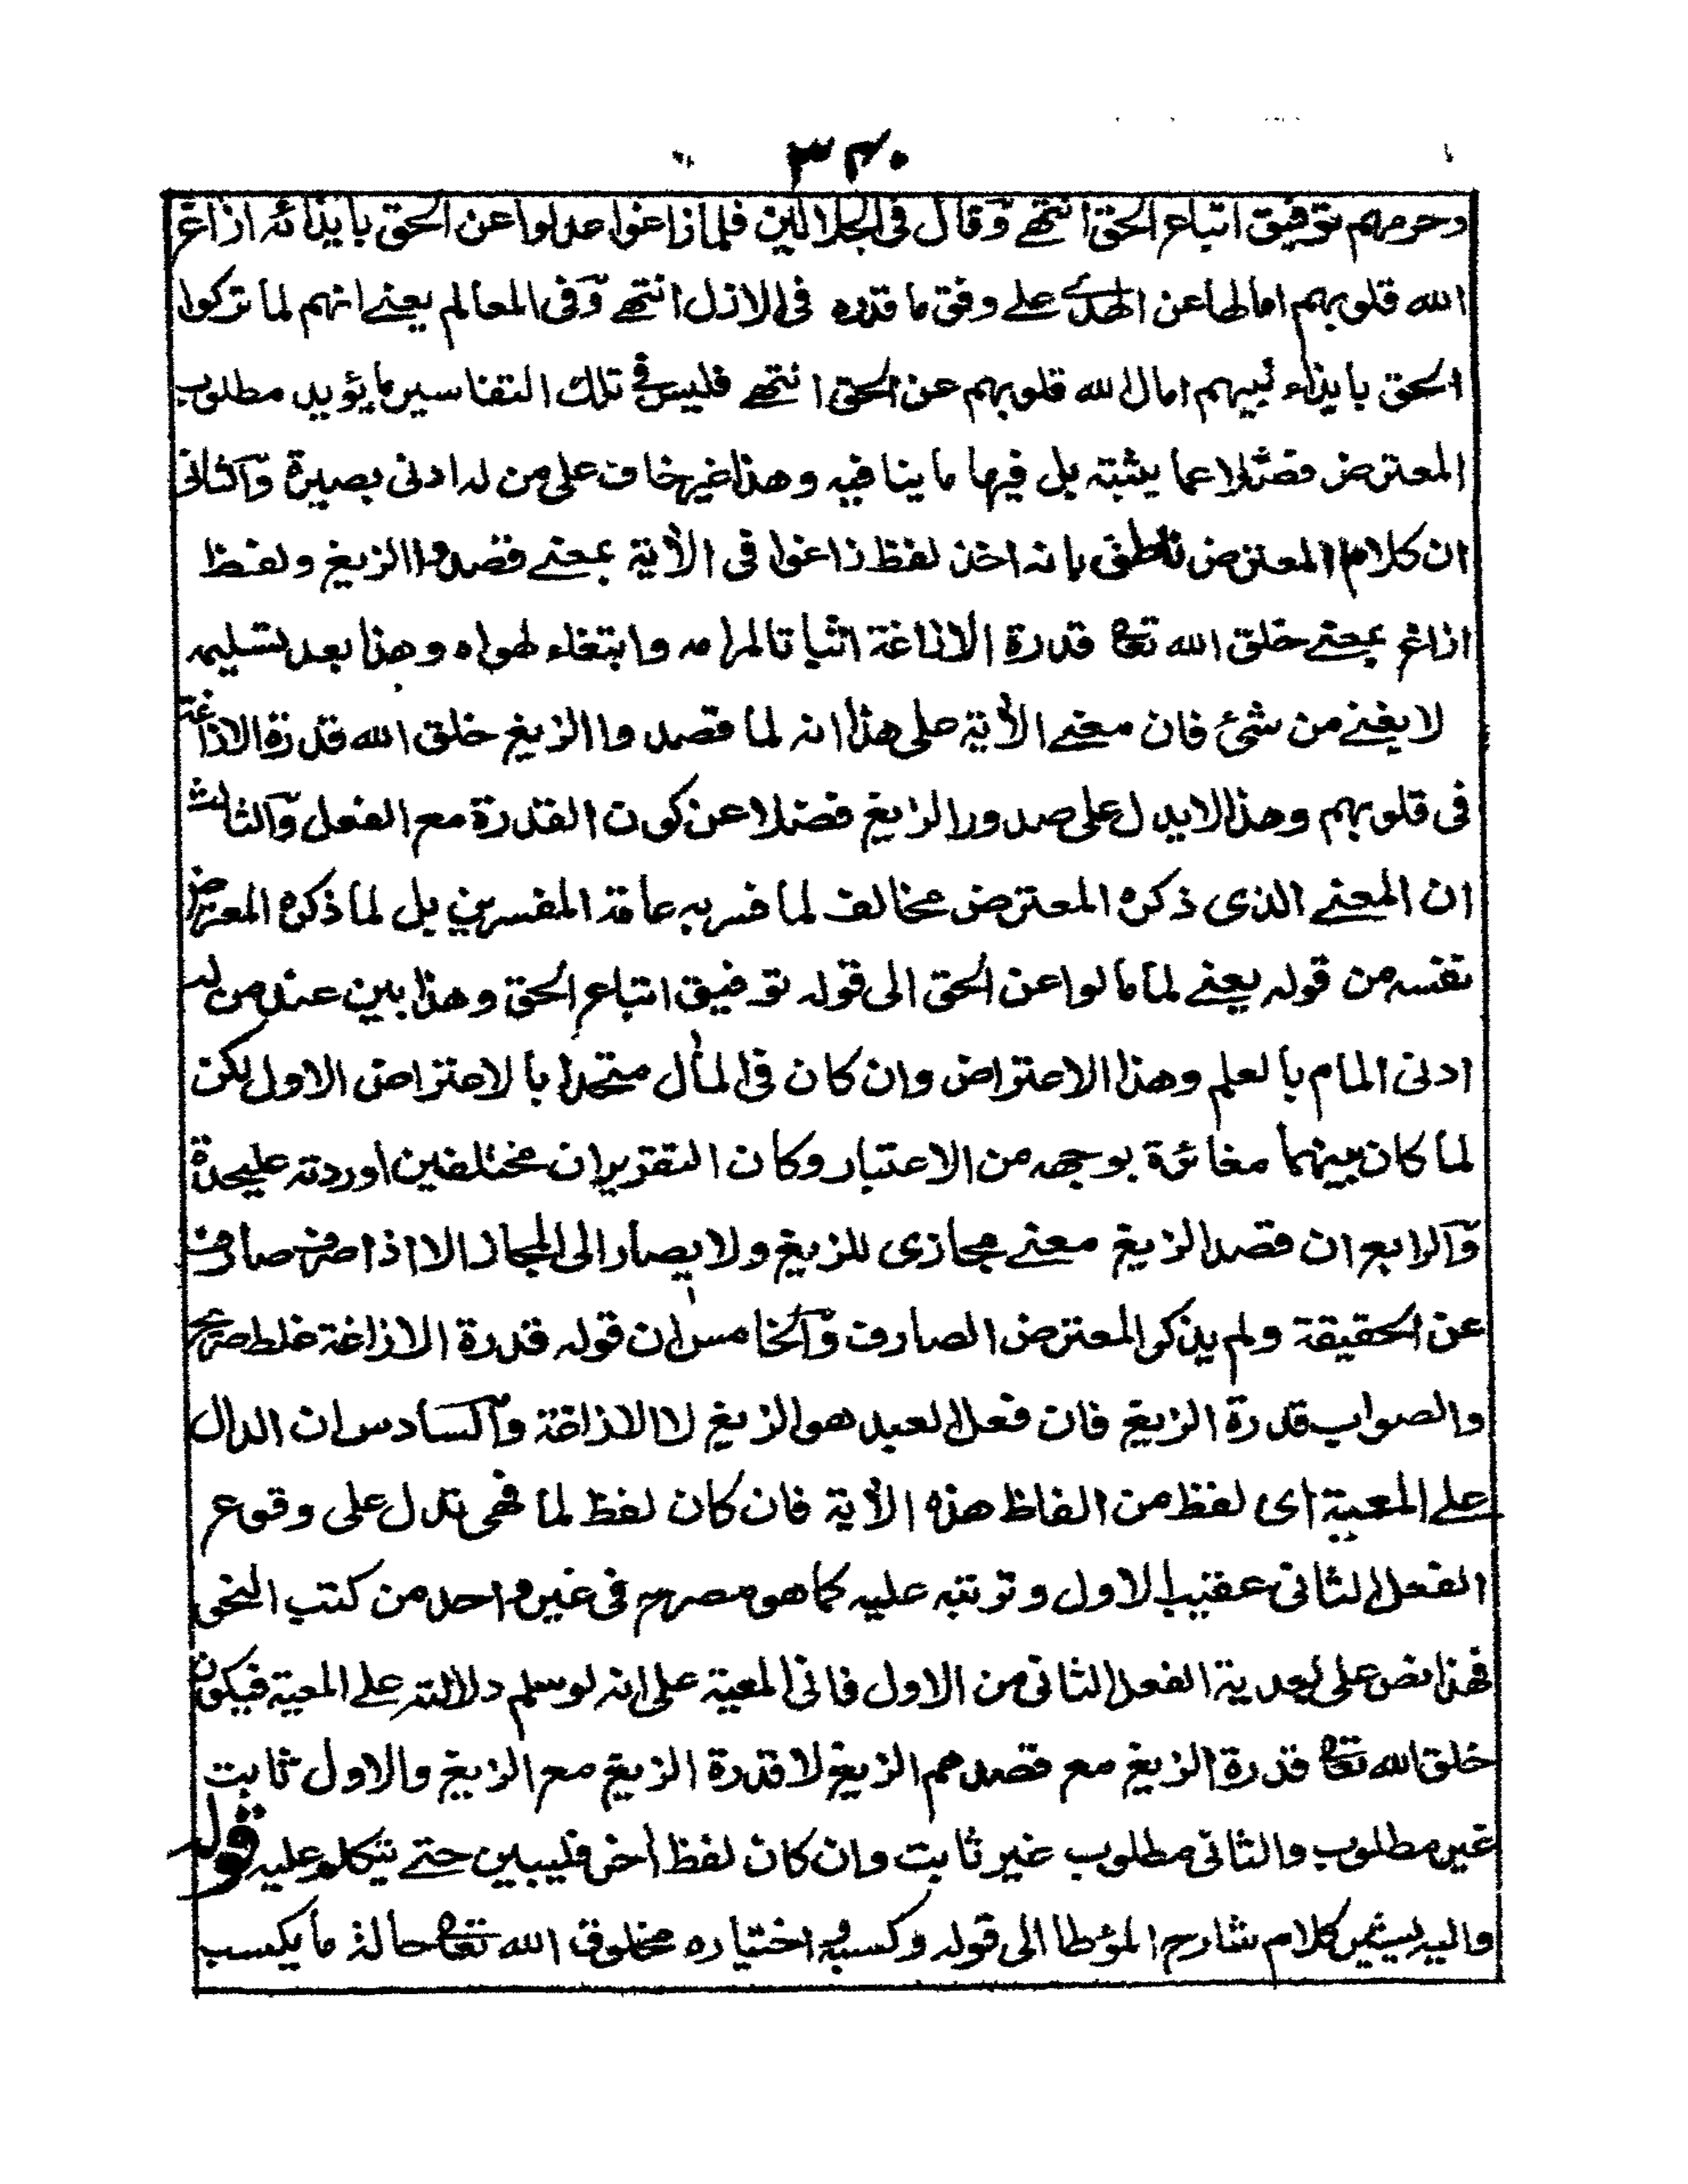 ۳۴۰
وحرمهم توفیق اتباع الحق انتهے وقال فی الجلالین فلما زاغوا عدلوا عن الحق بایذائه ازاغ
الله قلوبهم امالها عن الهدے علے وفق ما قدره فی الازل انتهے وفی المعالم یعنے انهم لما ترکوا
الحق بایذاء نبیهم امال الله قلوبهم عن الحق انتهے فلیس فی تلك التفاسیر ما یؤید مطلوب
المعترض فضلا عما یثبته بل فیها ما ینافیه وهذا غیر خاف علی من له ادنی بصیرة والثانی
ان کلام المعترض ناطق بانه اخذ لفظ زاغوا فی الأیة بمعنے قصدوا الزیغ ولفظ
ازاغ بمعنے خلق الله تعا قدرة الازاغة اثباتا لمرامه وابتغاء لهواه وهذا بعد تسلیمه
لا یغنے من شئ فان معنے الأیة علی هذا انه لما قصدوا الزیغ خلق الله قدرة الازاغة
فی قلوبهم وهذا لا یدل علی صدور الزیغ فضلا عن کون القدرة مع الفعل والثالث
ان المعنے الذی ذکره المعترض مخالف لما فسر به عامة المفسرین بل لما ذکره المعترض
نفسه من قوله یعنے لما مالوا عن الحق الی قوله توفیق اتباع الحق وهذا بین عند من له
ادنی المام بالعلم وهذا الاعتراض وان کان فی المأل متحدا بالاعتراض الاول لکن
لما کان بینهما مغائرة بوجهه من الاعتبار وکان التقریران مختلفین اوردته علیحدة
والرابع ان قصد الزیغ معنے مجازی للزیغ ولا یصار الی المجاز الا اذا صرف صارف
عن الحقیقة ولم یذکر المعترض الصارف والخامس ان قوله قدرة الازاغة غلط صریح
والصواب قدرة الزیغ فان فعل العبد هو الزیغ لا الازاغة والسادس ان الدال
علے المعیة ای لفظ من الفاظ هذه الأیة فان کان لفظ لما فهی تدل علی وقوع
الفعل الثانی عقیب الاول وترتبه علیه کما هو مصرح فی غیر واحد من کتب النحو
فهذا نص علی بعدیة الفعل الثانی من الاول فانی المعیة علی انه لو سلم دلالته علے المعیة فیکون
خلق الله تعا قدرة الزیغ مع قصدهم الزیغ لا قدرة الزیغ مع الزیغ والاول ثابت
غیر مطلوب والثانی مطلوب غیر ثابت وان کان لفظ أخر فلیبین حتے نتکلم علیه قوله
والیه یشیر کلام شارح المؤطا الی قوله وکسبه اختیاره مخلوق الله تعا حالة ما یکسب